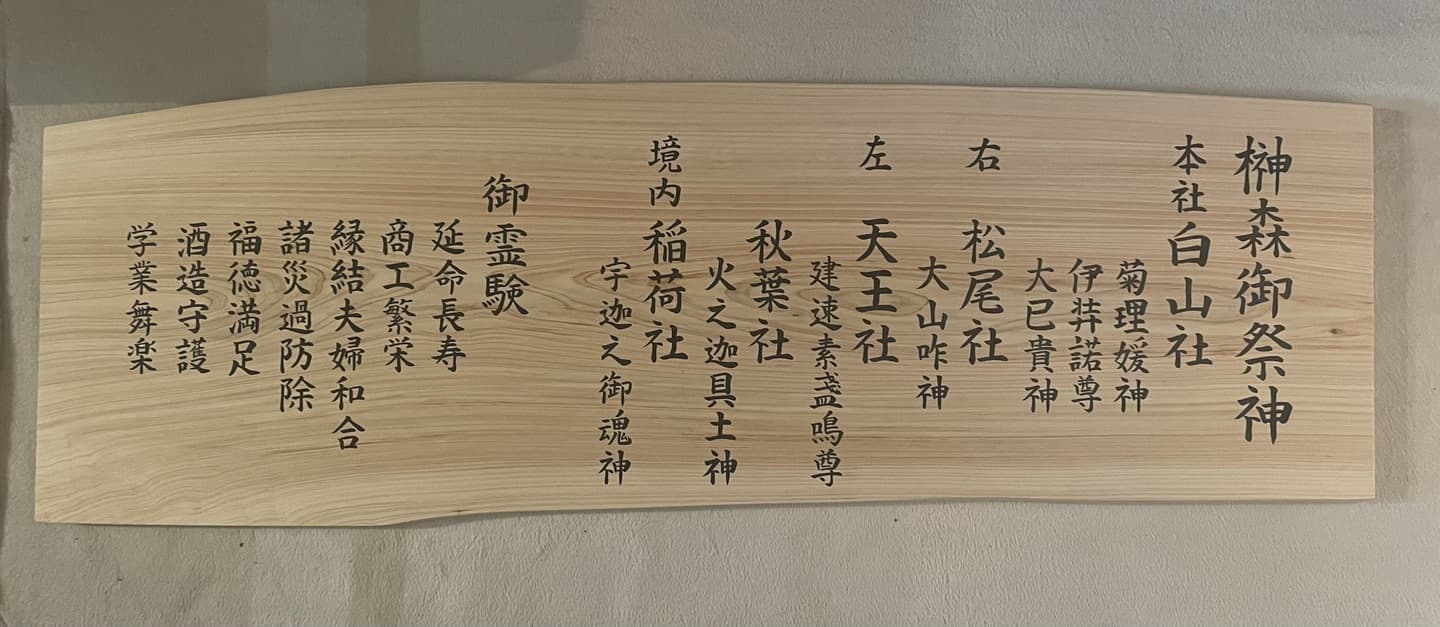 榊森御祭神
本社 白山社
菊理媛神
伊弉諾尊
大巳貴神
右 松尾社
大山咋神
左 天王社
建速素盞鳴尊
秋葉社
火之迦具土神
境内 稲荷社
宇迦之御魂神
御霊験
延命長寿
商工繁栄
縁結夫婦和合
諸災過防除
福徳満足
酒造守護
学業舞楽